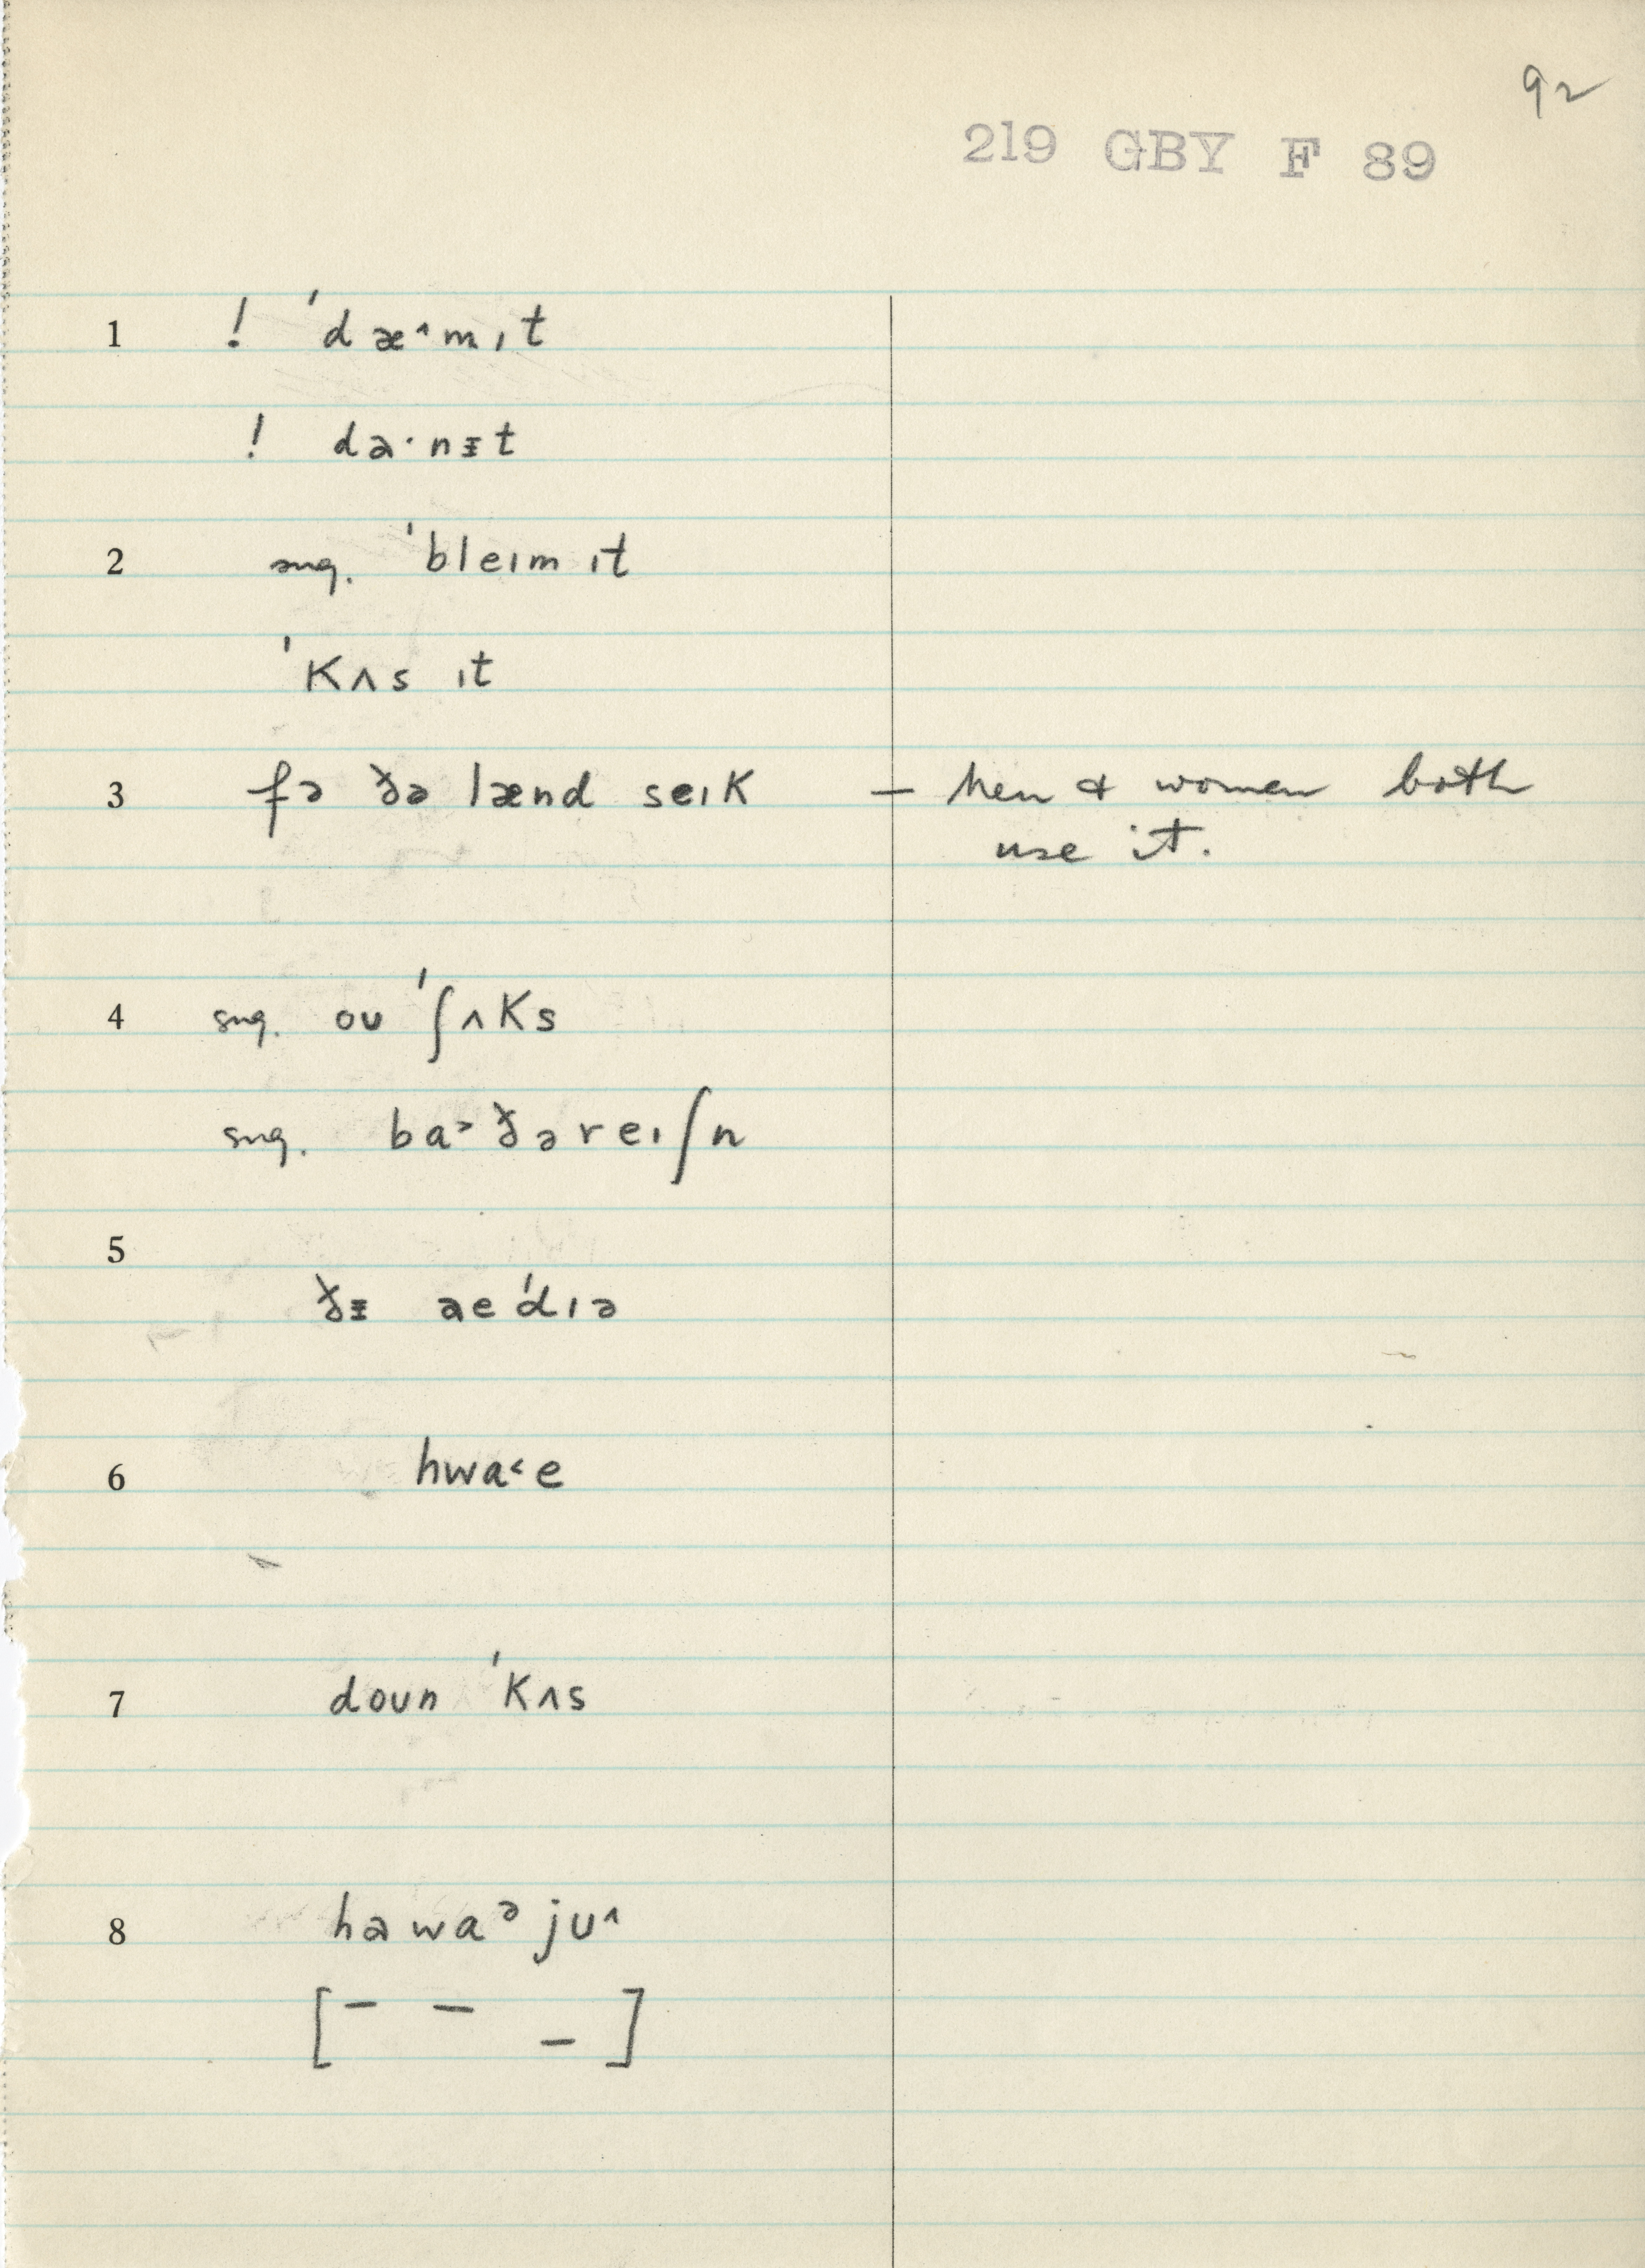 92
219 GBY F 89
1 ! ˈdæ˄mɪt
! da·nᵻt
2 sug. ˈbleɪm ɪt
ˈkʌs ɪt
3 fə ðə lænd seɪk — men & women both
use it.
4 sug. oʊ ˈʃʌks
sug. ba˃ðəreɪʃn
5
ðᵻ aeˈdɪə
6 hwa˂e
7 doun ˈkʌs
8 hawaᵊju˄
[¯ ¯ _]